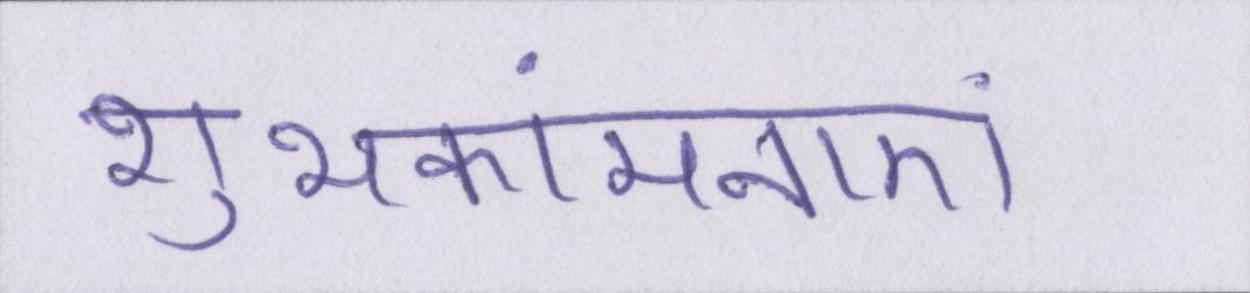 शुभकांमनाएं